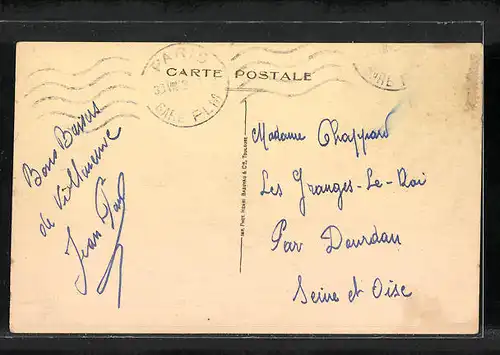 CARTE POSTALE
PARIS
GARE PLM
Bons Baisers
de Villeneuve
Jean
Madame Chappard
Les Granges-Le-Roi
Par Dourdan
Seine et Oise
IMP. PHOT. HENRI BASUYAU & CO, TOULOUSE